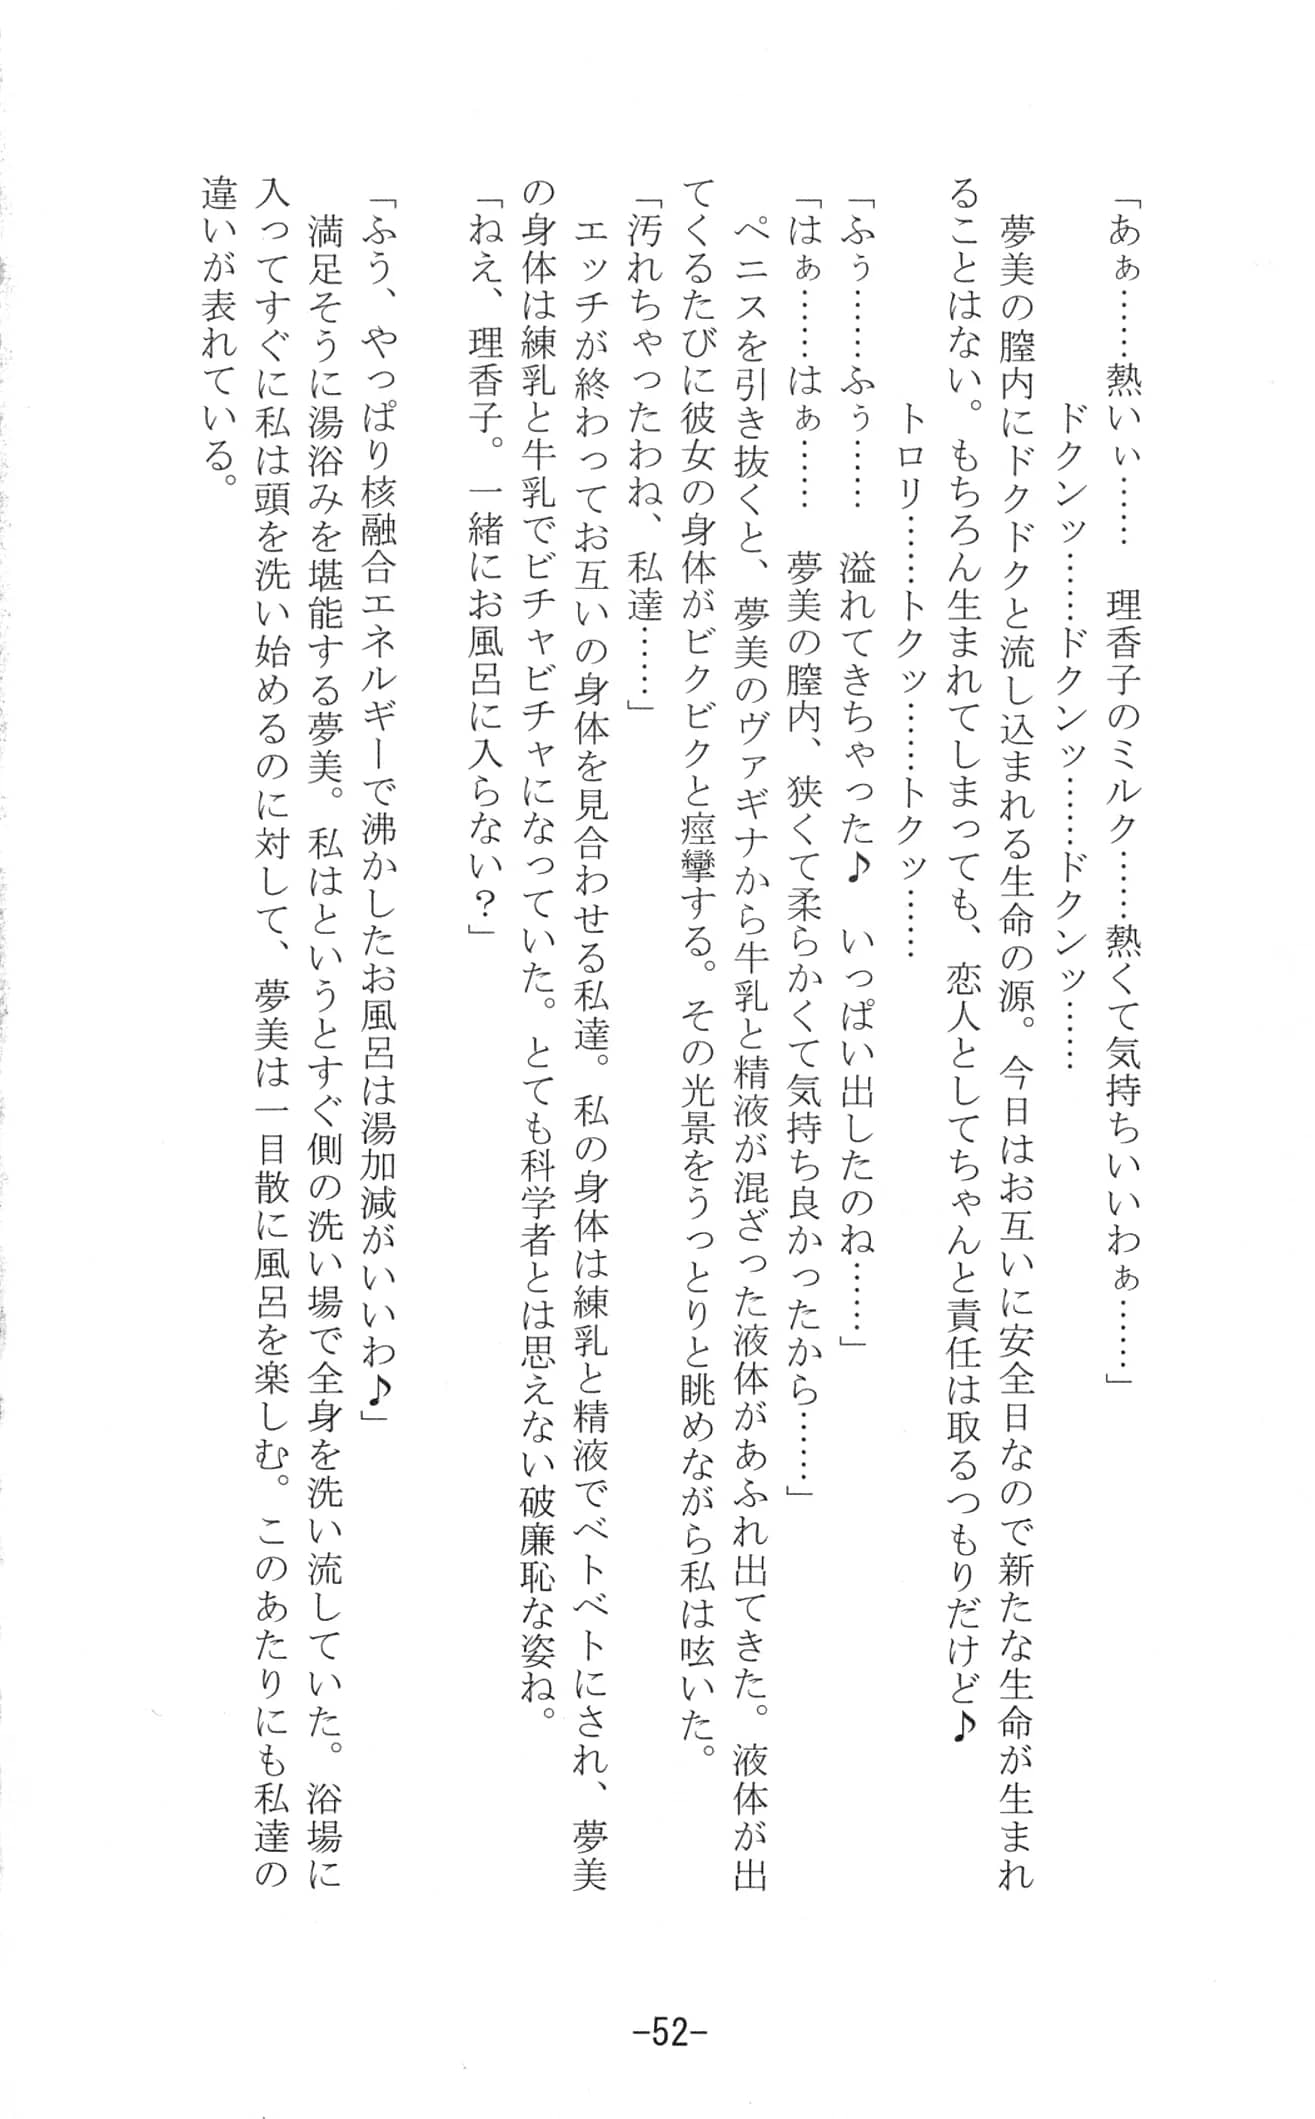 「あぁ……熱いぃ……　理香子のミルク……熱くて気持ちいいわぁ……」
ドクンッ……ドクンッ……ドクンッ……
夢美の膣内にドクドクと流し込まれる生命の源。今日はお互いに安全日なので新たな生命が生まれ
ることはない。もちろん生まれてしまっても、恋人としてちゃんと責任は取るつもりだけど♪
トロリ……トクッ……トクッ……
「ふぅ……ふぅ……　溢れてきちゃった♪　いっぱい出したのね……」
「はぁ……はぁ……　夢美の膣内、狭くて柔らかくて気持ち良かったから……」
ペニスを引き抜くと、夢美のヴァギナから牛乳と精液が混ざった液体があふれ出てきた。液体が出
てくるたびに彼女の身体がビクビクと痙攣する。その光景をうっとりと眺めながら私は呟いた。
「汚れちゃったわね、私達……」
エッチが終わってお互いの身体を見合わせる私達。私の身体は練乳と精液でベトベトにされ、夢美
の身体は練乳と牛乳でビチャビチャになっていた。とても科学者とは思えない破廉恥な姿ね。
「ねえ、理香子。一緒にお風呂に入らない？」
「ふう、やっぱり核融合エネルギーで沸かしたお風呂は湯加減がいいわ♪」
満足そうに湯浴みを堪能する夢美。私はというとすぐ側の洗い場で全身を洗い流していた。浴場に
入ってすぐに私は頭を洗い始めるのに対して、夢美は一目散に風呂を楽しむ。このあたりにも私達の
違いが表れている。
-52-